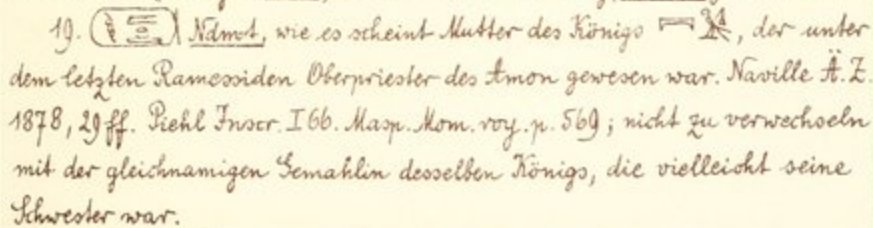 19. Ndmt, wie es scheint Mutter des Königs, der unter
dem letzten Ramessiden Oberpriester des Amon gewesen war. Naville Ä.Z.
1878, 29 ff. Piehl Inscr. I 66. Masp. Mom. roy. p. 569; nicht zu verwechseln
mit der gleichnamigen Gemahlin desselben Königs, die vielleicht seine
Schwester war.